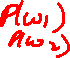 P(w1)
P(w2)